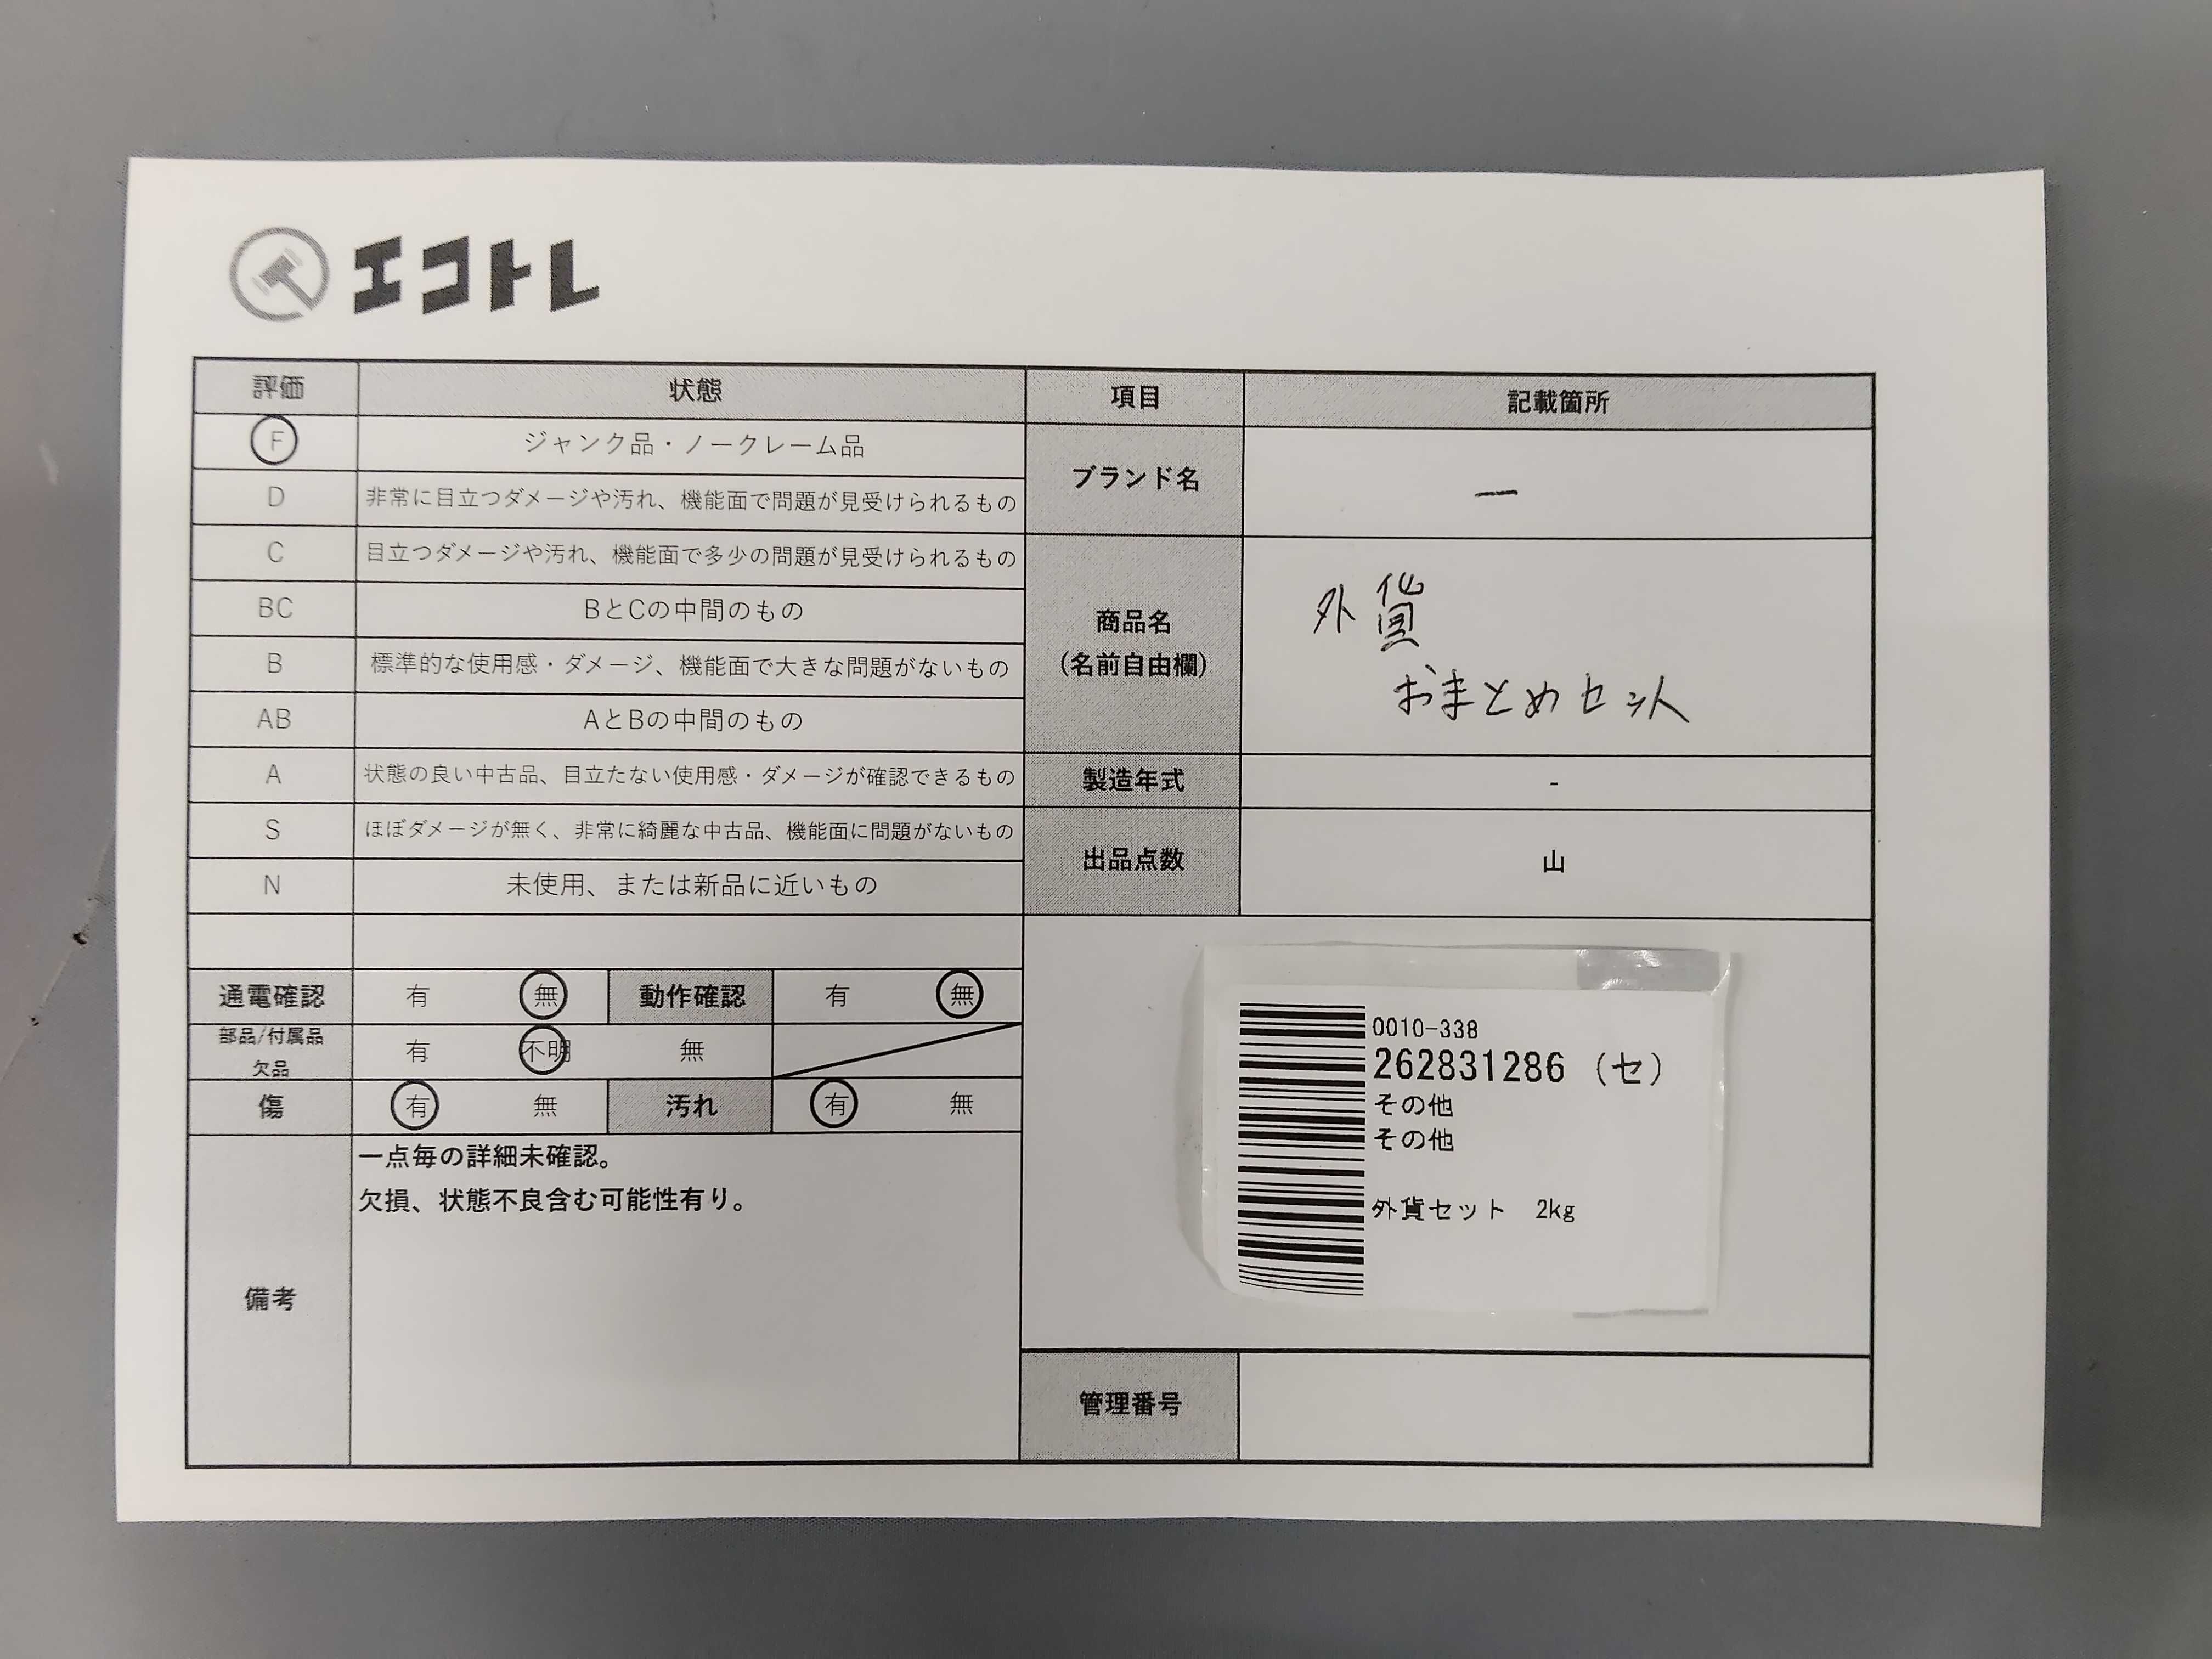 エコトレ
評価 状態 項目 記載箇所
F ジャンク品・ノークレーム品
D 非常に目立つダメージや汚れ、機能面で問題が見受けられるもの
ブランド名 ー
C 目立つダメージや汚れ、機能面で多少の問題が見受けられるもの
BC BとCの中間のもの
B 標準的な使用感・ダメージ、機能面で大きな問題がないもの
AB AとBの中間のもの
商品名
(名前自由欄)
外貨
おまとめセット
A 状態の良い中古品、目立たない使用感・ダメージが確認できるもの
製造年式 -
S ほぼダメージが無く、非常に綺麗な中古品、機能面に問題がないもの
N 未使用、または新品に近いもの
出品点数 山
通電確認 有 無 動作確認 有 無
部品/付属品
欠品
有 不明 無
傷 有 無 汚れ 有 無
備考
一点毎の詳細未確認。
欠損、状態不良含む可能性有り。
0010-338
262831286 (セ)
その他
その他
外貨セット 2kg
管理番号